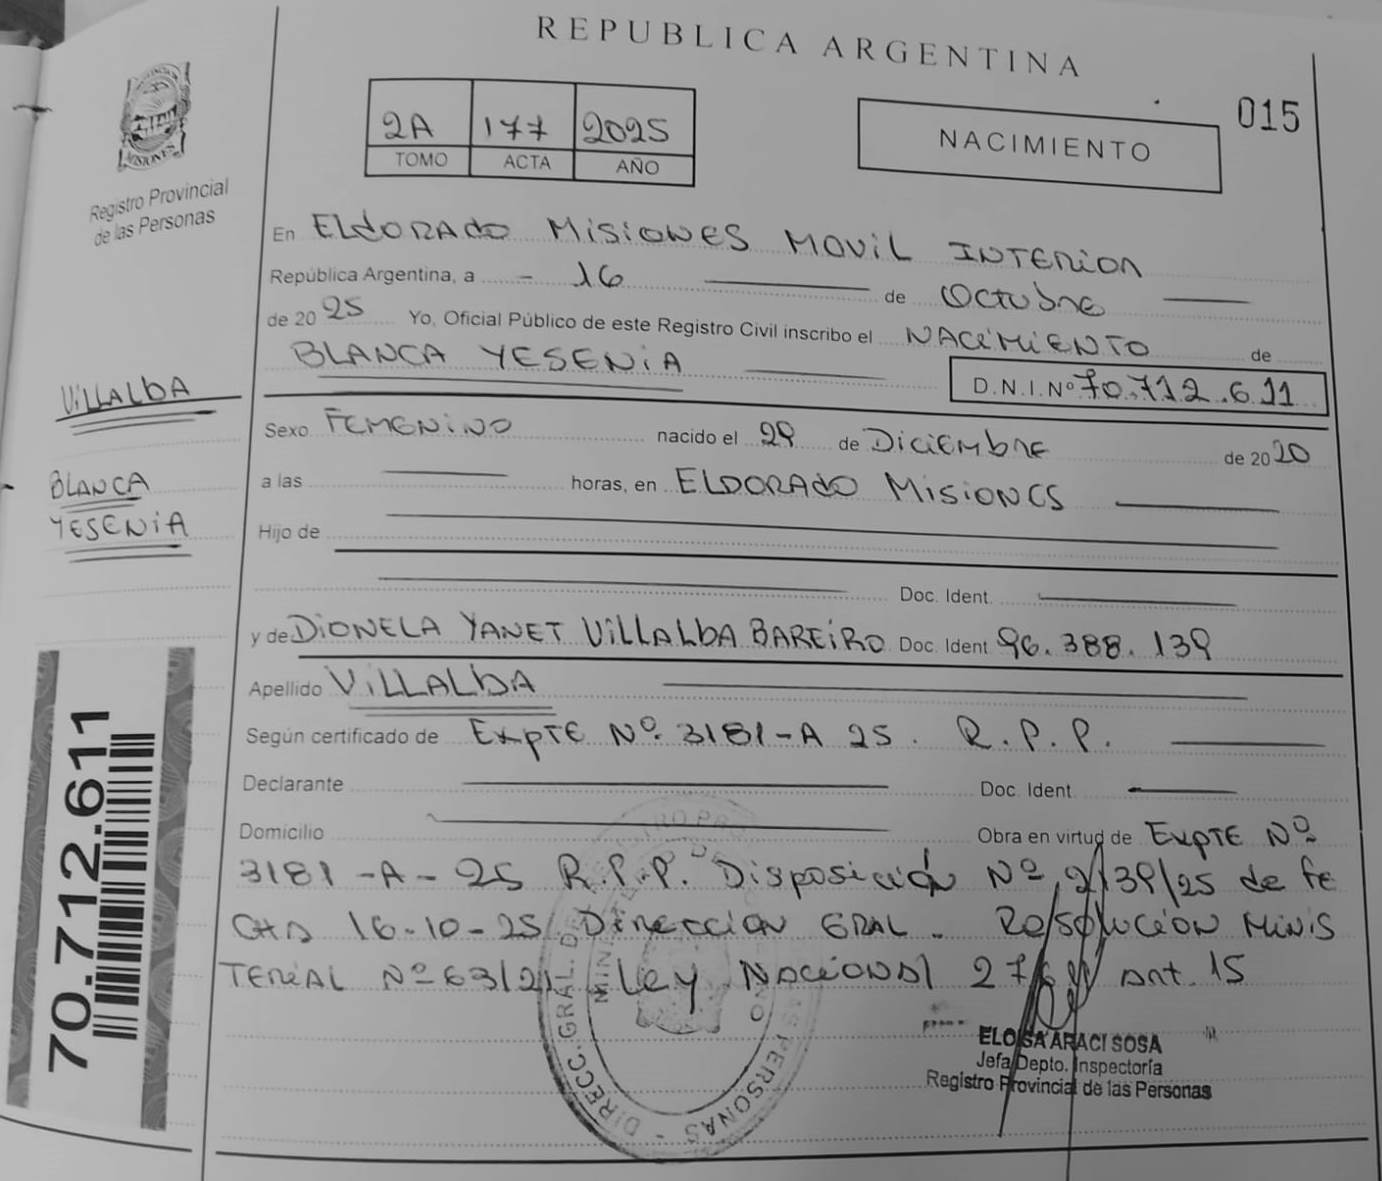 REPUBLICA ARGENTINA
015
2A 177 2025
TOMO ACTA AÑO
NACIMIENTO
MISIONES
Registro Provincial
de las Personas
En ELDORADO MISIONES MOVIL INTERIOR
República Argentina, a - 16 de OCTUBRE
de 2025 Yo, Oficial Público de este Registro Civil inscribo el NACIMIENTO de
BLANCA YESENIA
D.N.I.Nº 70.712.611
VILLALBA
Sexo FEMENINO nacido el 29 de DICIEMBRE de 2020
BLANCA
YESENIA
a las horas, en ELDORADO MISIONES
Hijo de
Doc. Ident.
y de DIONELA YANET VILLALBA BAREIRO Doc. Ident 96.388.139
Apellido VILLALBA
Según certificado de EXPTE Nº. 3181-A 25. R.P.P.
Declarante Doc. Ident.
Domicilio Obra en virtud de EXPTE Nº
3181-A-25 R.P.P. Disposición Nº 2139/25 de fe
CHA 16-10-25 Dirección GRAL. Resolución MINIS
TERIAL Nº 63/21 Ley Nacional Art. 15
70.712.611
DIRECC. GRAL. PERSONAS
ELOISA ARACI SOSA
Jefa Depto. Inspectoría
Registro Provincial de las Personas